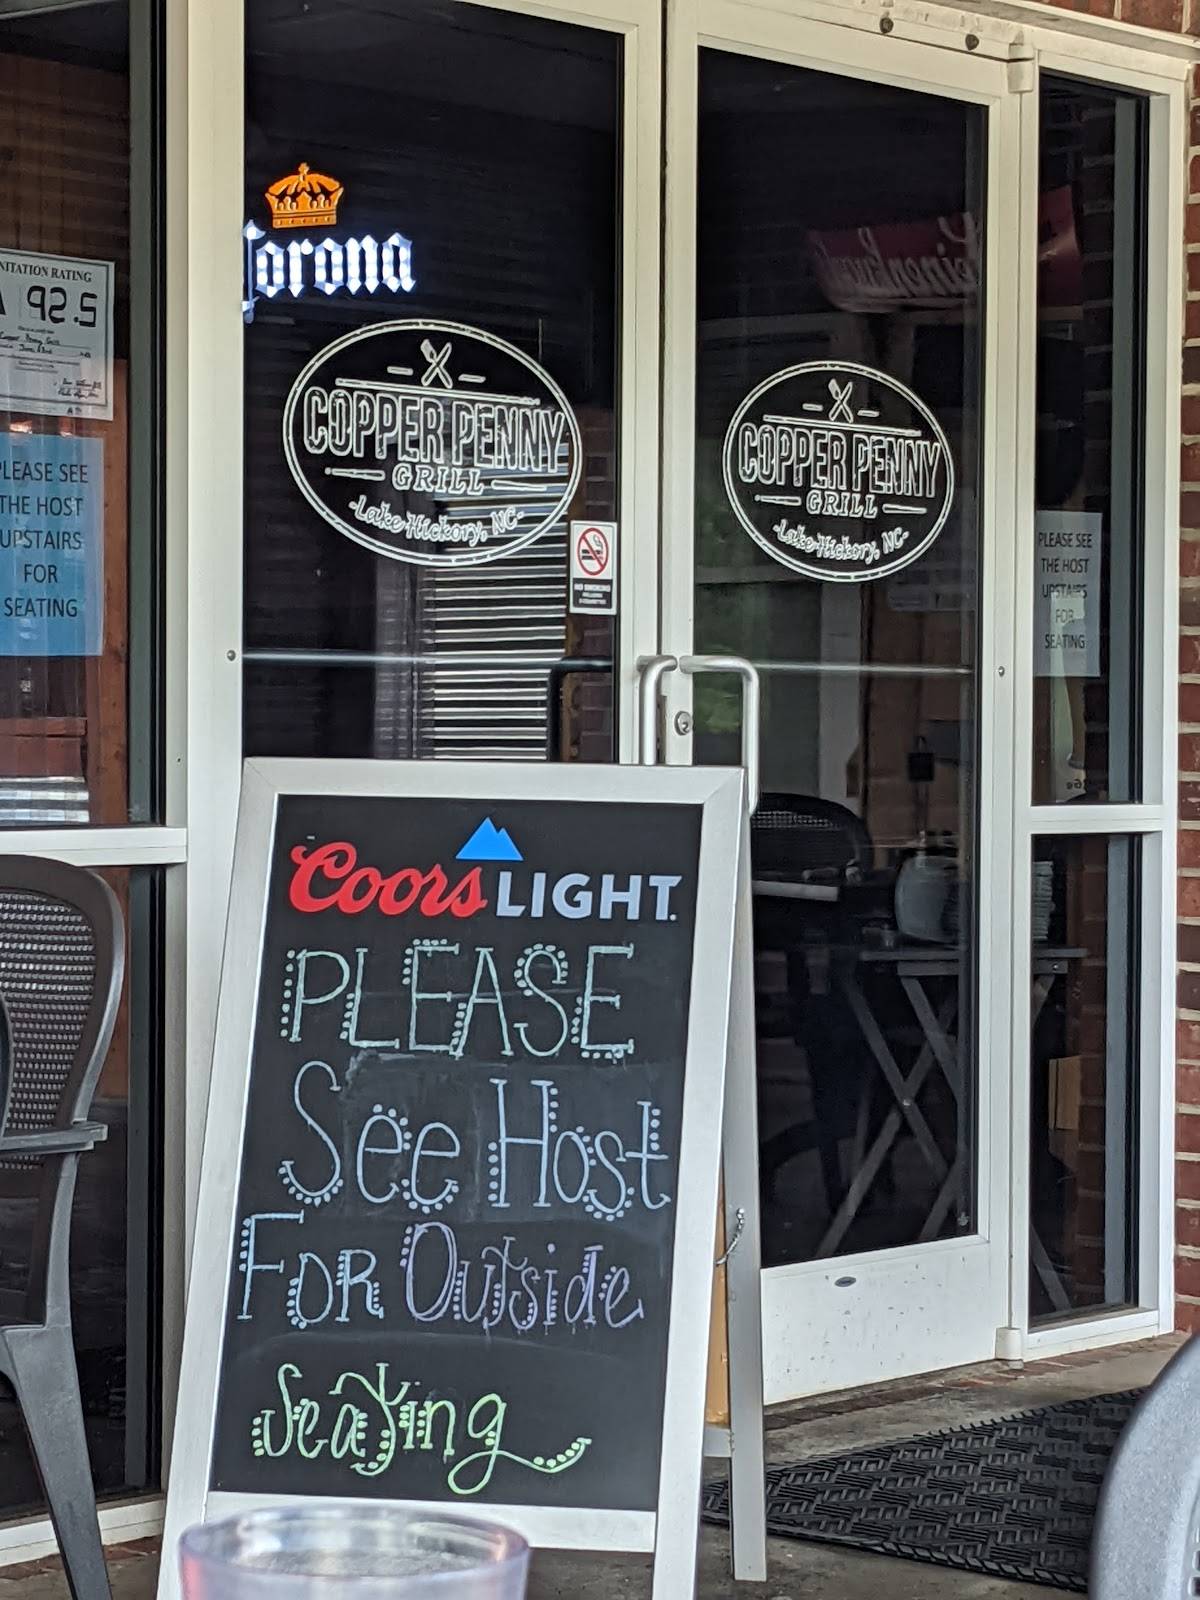 Corona
COPPER PENNY
GRILL
Lake Hickory, NC
COPPER PENNY
GRILL
Lake Hickory, NC
NITATION RATING
PLEASE SEE
THE HOST
UPSTAIRS
FOR
SEATING
NO SMOKING
PLEASE SEE
THE HOST
UPSTAIRS
FOR
SEATING
Coors LIGHT
PLEASE
See Host
FOR Outside
Seating